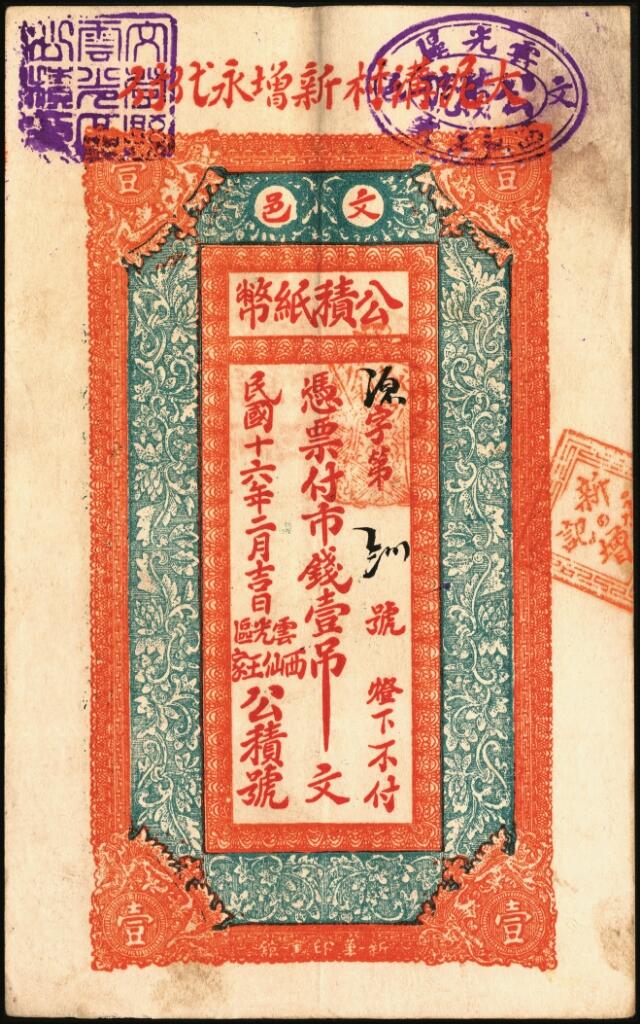 大泥溝村新增永代印
文邑
壹
壹
公積紙幣
源字第
號 燈下不付
憑票付市錢壹吊文
民國十六年二月吉日
雲光區
西仙王家
公積號
壹
壹
新華印書館
雲光區
文
新增
記